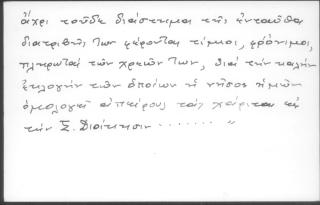 ἄχρι τοῦδε διάστημα τῆς ἐνταῦθα
διατριβῆς των φέρονται τίμιοι, φρόνιμοι,
πληρωταὶ τῶν χρεῶν των, διὰ τὴν καλὴν
ἐκλογὴν τῶν ὁποίων ἡ νῆσος ἡμῶν
ὁμολογεῖ ἀπείρους τὰς χάριτας εἰς
τὴν Σ. Διοίκησιν ....... "